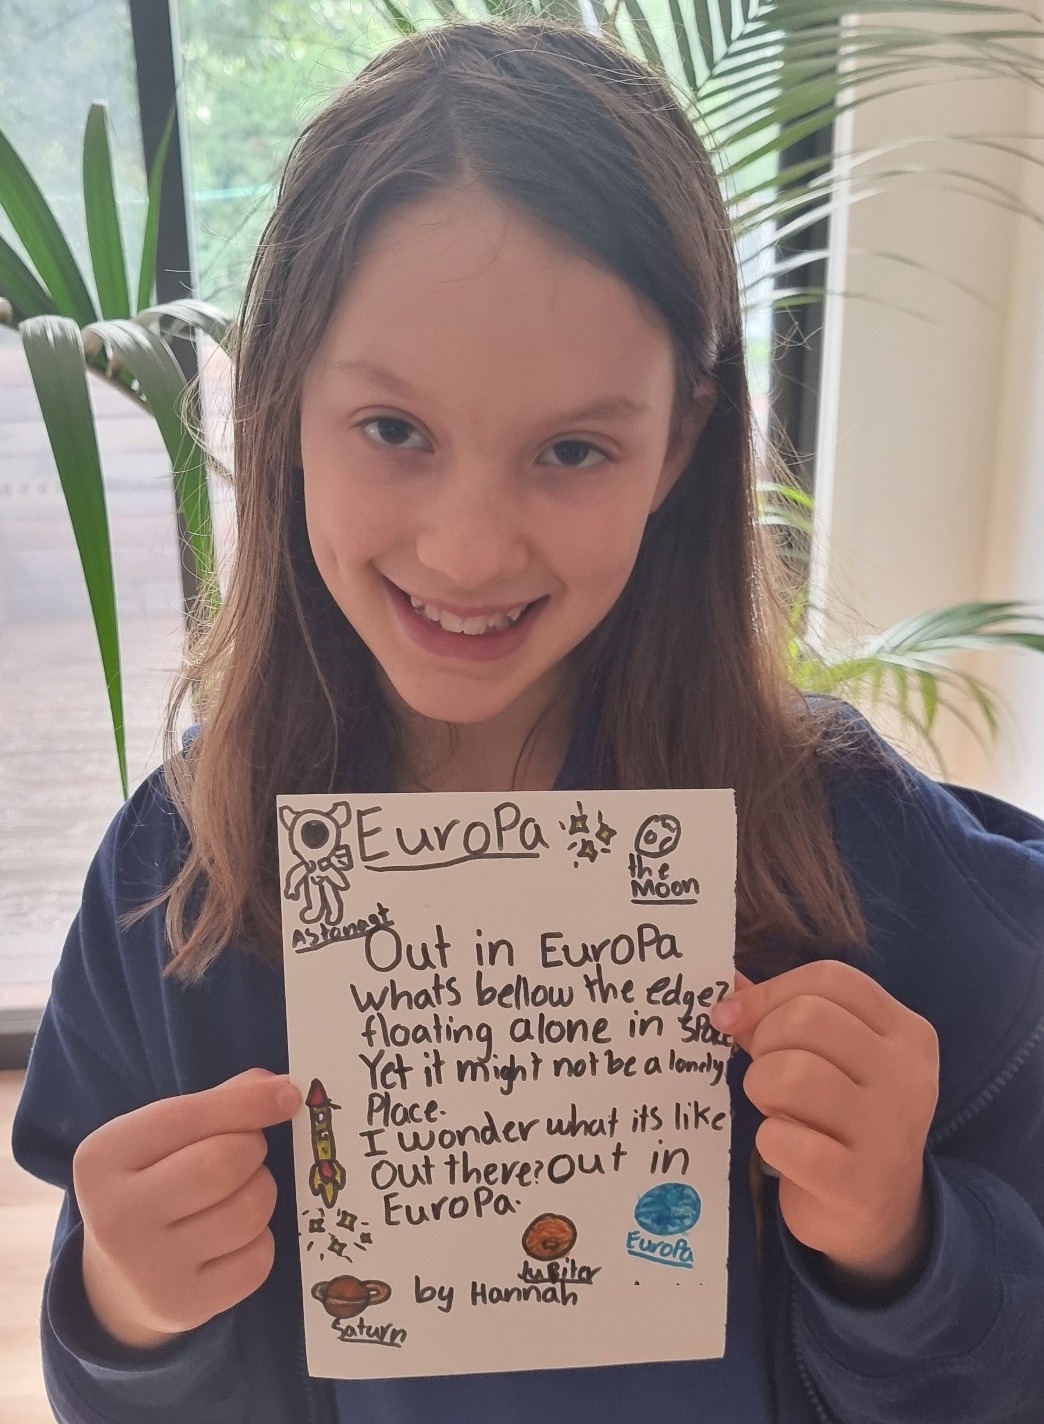 EuroPa
the
Moon
Astonaot
Out in EuroPa
whats bellow the edge?
floating alone in
Yet it might not be a lonely
Place.
I wonder what its like
out there? out in
EuroPa.
EuroPa
JuPiter
by Hannah
Saturn